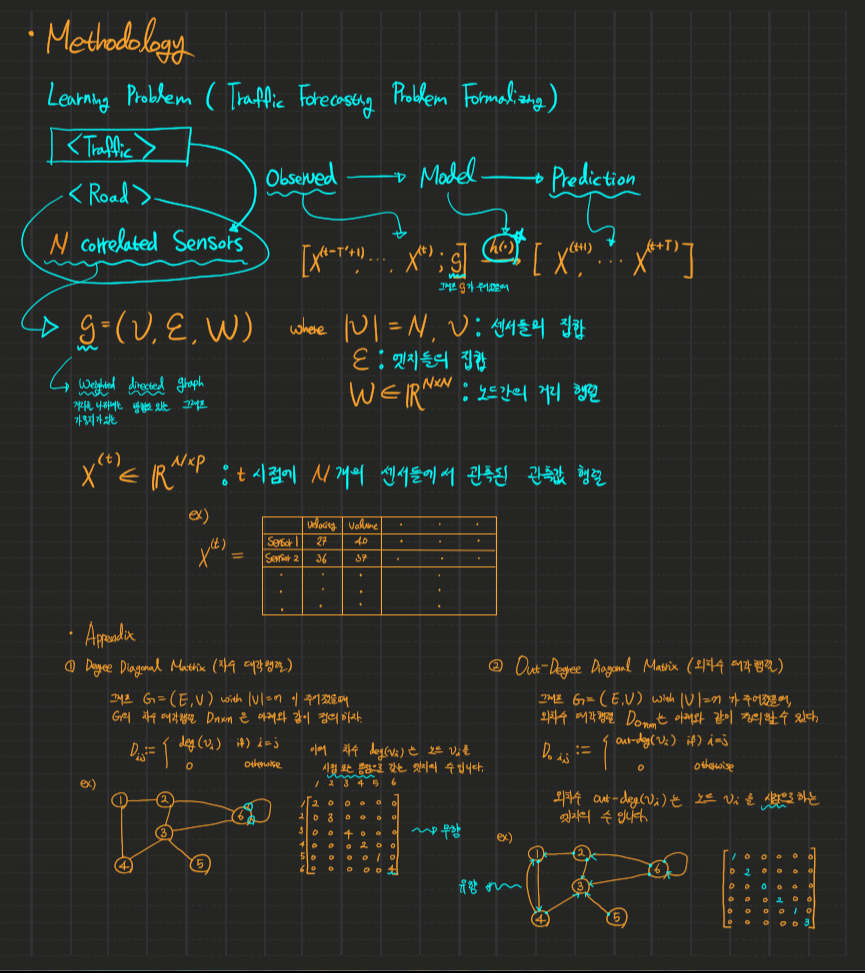 · Methodology
Learning Problem ( Traffic Forecasting Problem Formalizing )
<Traffic>
<Road>
N correlated Sensors
Observed → Model → Prediction
[X^(t-T'+1), ..., X^(t) ; g] h(·) [X^(t+1), ... X^(t+T)]
그래프 g가 주어졌을때
g = (V, E, W) where |V| = N, V : 센서들의 집합
E : 엣지들의 집합
W ∈ R^N×N : 노드간의 거리 행렬
Weighted directed graph
거리를 나타내는 방향성 있는 그래프
가중치가 있는
X^(t) ∈ R^N×P : t 시점에 N개의 센서들에서 관측된 관측값 행렬
ex)
X^(t) =
Velocity Volume · · ·
Sensor 1 27 40 · · ·
Sensor 2 36 37 · · ·
· · · ·
· · · ·
· · · ·
· Appendix
① Degree Diagonal Matrix (차수 대각행렬)
그래프 G = (E, V) with |V|=n 이 주어졌을때
G의 차수 대각행렬 Dn×n 는 아래와 같이 정의하자.
Dij := { deg(vi) if) i=j
0 otherwise
이때 차수 deg(vi)는 노드 vi를
시점 또는 종점으로 갖는 엣지의 수 입니다.
ex)
1 2 6 3 4 5
1 2 3 4 5 6
1 2 0 0 0 0 0
2 0 3 0 0 0 0
3 0 0 4 0 0 0
4 0 0 0 2 0 0
5 0 0 0 0 1 0
6 0 0 0 0 0 4
무향
② Out-Degree Diagonal Matrix (외차수 대각행렬)
그래프 G = (E, V) with |V|=n 가 주어졌을때,
외차수 대각행렬 Do nm는 아래와 같이 정의할 수 있다.
Do ij := { out-deg(vi) if) i=j
0 otherwise
외차수 out-deg(vi)는 노드 vi를 시점으로 하는
엣지의 수 입니다.
ex)
유향
1 2 6 3 4 5
1 0 0 0 0 0
0 2 0 0 0 0
0 0 0 0 0 0
0 0 0 2 0 0
0 0 0 0 1 0
0 0 0 0 0 3